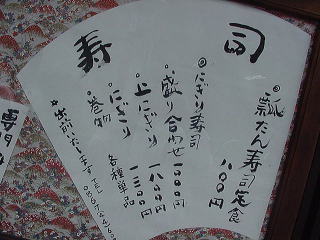 寿司
◎瓢たん寿司定食
八〇〇円
◎にぎり寿司
盛り合わせ 一〇〇〇円
上にぎり 一八〇〇円
にぎり 一三〇〇円
巻物 各種単品
出前いたします TEL
専門